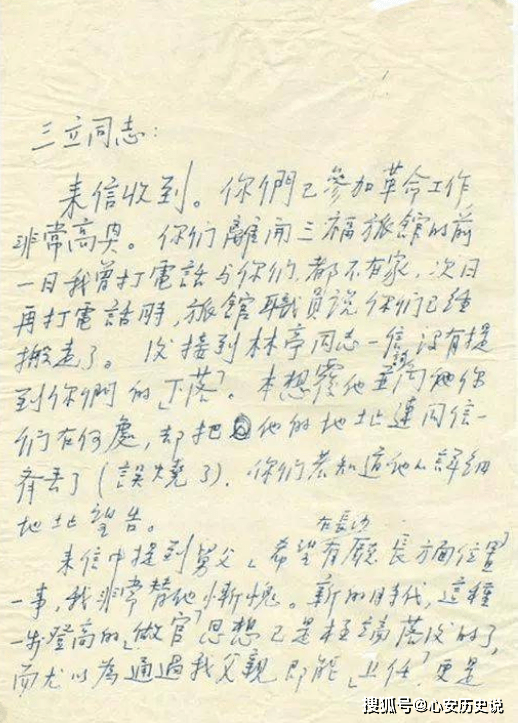 三立同志：
来信收到。你們已參加革命工作，
非常高兴。你们離開三福旅館的前
一日我曾打電話与你们，都不在家，次日
再打電話時，旅館職員说你们已经
搬走了。後接到林亭同志一信，没有提
到你們的「下落」。本想覆他並问他你
们在何處，却把他的地址連同信一
齊丟了（誤燒了）。你们若知道他的詳细
地址望告。
来信中提到舅父「希望在長沙有廳長方面位置」
一事，我非常替他惭愧。新的时代，這種
一步登高的「做官」思想已是极端落後的了，
而尤以為通過我父親即能「上任」，更是
搜狐号@心安历史说